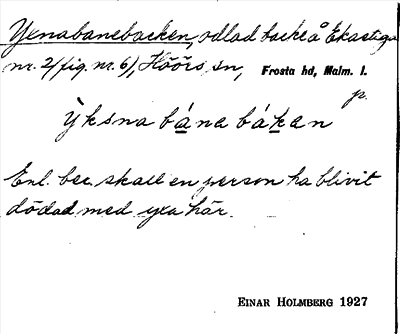 Yxnabanebacken, odlad backe å Ekastiga
nr. 2 (fig. nr. 6), Höörs sn, Frosta hd, Malm. l.
p.
ỳksna bána bákan
Enl. ber. skall en person ha blivit
dödad med yxa här.
EINAR HOLMBERG 1927